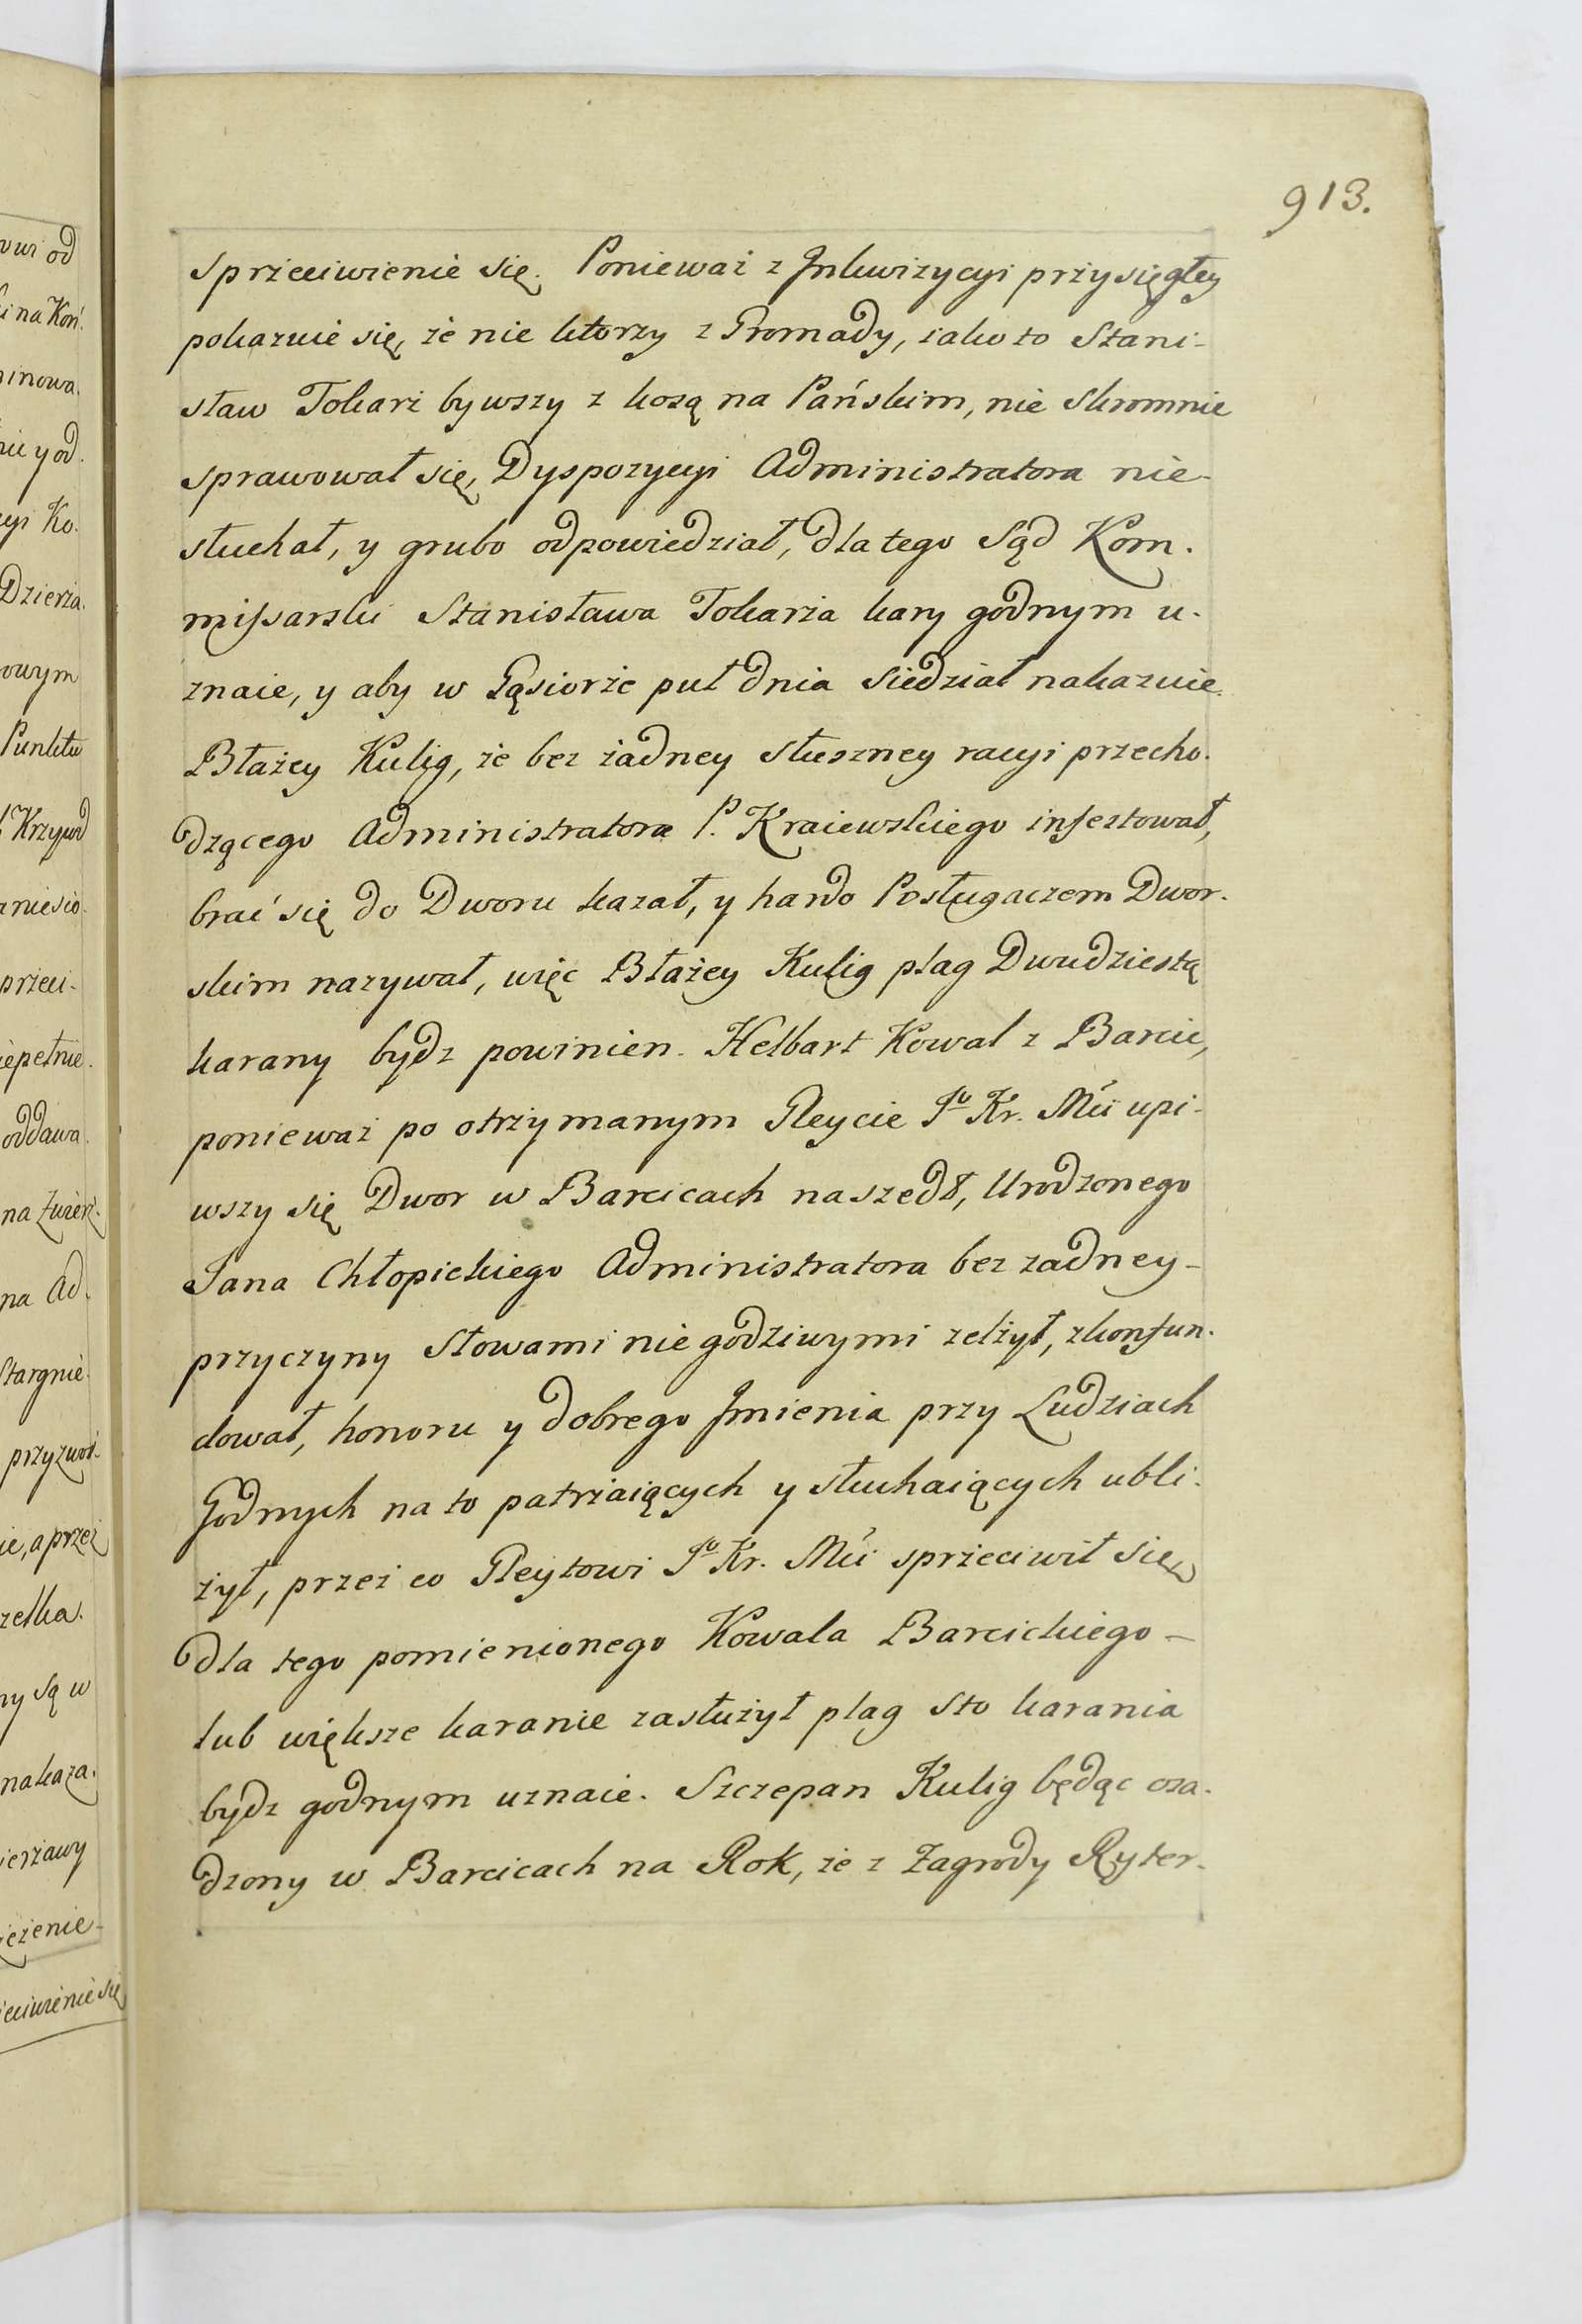 913.
sprzeciwienie się. Ponieważ z Inkwizycyi przysięgłey
pokazuie się, że nie którzy z Gromady, iako to Stani-
sław Tokarz bywszy z kosą na Pańskim, nie skromnie
sprawował się, Dyspozycyi Administratora nie-
słuchał, y grubo odpowiedział, dla tego Sąd Kom-
missarski Stanisława Tokarza kary godnym u-
znaie, y aby w Gąsiorze puł dnia siedział nakazuie.
Błażey Kulig, że bez żadney słuszney racyi przecho-
dzącego Administratora P. Kraiewskiego infestował,
brać się do Dworu kazał, y hardo Posługaczem Dwor-
skim nazywał, więc Błażey Kulig plag Dwudziestą
karany bydz powinien. Helbart Kowal z Barcic,
ponieważ po otrzymanym Gleycie Jº Kr. Mći upi-
wszy się Dwor w Barcicach naszedł, Urodzonego
Jana Chłopickiego Administratora bez żadney-
przyczyny słowami niegodziwymi zelżył, zkonfun-
dował, honoru y dobrego Imienia przy Ludziach
Godnych na to patrzaiących y słuchaiących ubli-
żył, przez co Gleytowi Jº Kr. Mći sprzeciwił się,
dla tego pomienionego Kowala Barcickiego-
lub większe karanie zasłużył plag sto karania
bydz godnym uznaie. Szczepan Kulig będąc osa-
dzony w Barcicach na Rok, że z Zagrody Ryter-